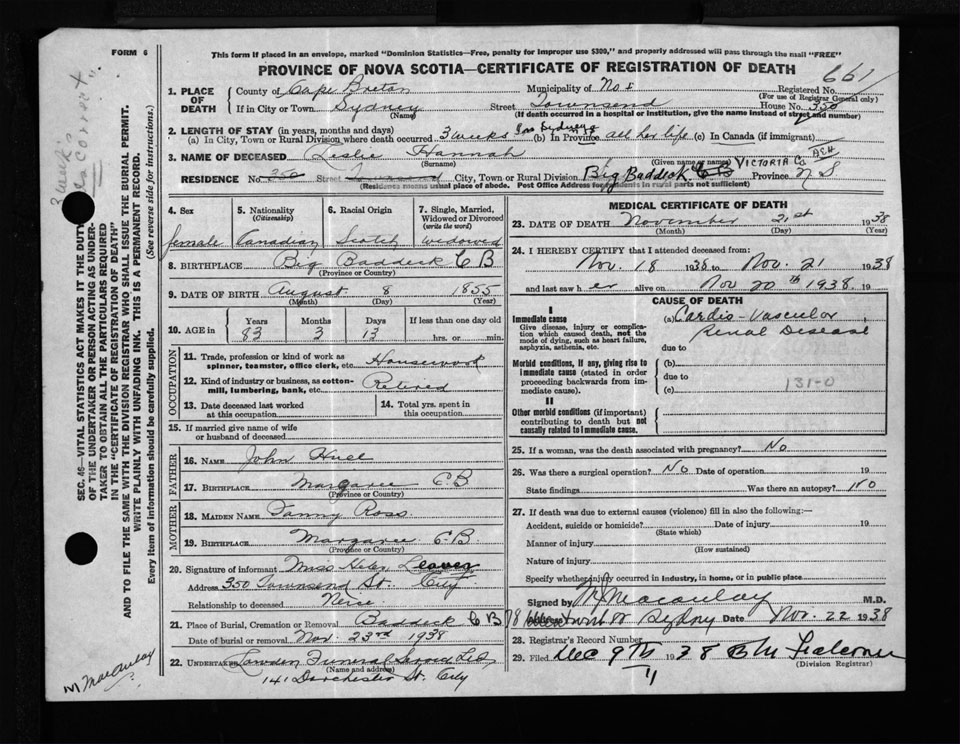 FORM 6
This form if placed in an envelope, marked "Dominion Statistics—Free, penalty for improper use $300," and properly addressed will pass through the mail "FREE"
PROVINCE OF NOVA SCOTIA—CERTIFICATE OF REGISTRATION OF DEATH
661
1. PLACE OF DEATH County of Cape Breton Municipality of Registered No.
(For use of Registrar General only)
If in City or Town Sydney Street Townsend House No. 350
(Name) (If death occurred in a hospital or institution, give the name instead of street and number)
2. LENGTH OF STAY (in years, months and days)
(a) In City, Town or Rural Division where death occurred 3 weeks (b) In Province all her life (c) In Canada (if immigrant)
3. NAME OF DECEASED Leslie Hannah
(Surname) (Given name or names) VICTORIA Co
RESIDENCE No. 350 Street Townsend City, Town or Rural Division Big Baddeck C B Province N S
(Residence means usual place of abode. Post Office Address for residents in rural parts not sufficient)
4. Sex 5. Nationality (Citizenship) 6. Racial Origin 7. Single, Married, Widowed or Divorced (write the word)
female Canadian Scotch widowed
8. BIRTHPLACE Big Baddeck C B
(Province or Country)
9. DATE OF BIRTH August 8 1855
(Month) (Day) (Year)
10. AGE in Years Months Days If less than one day old
83 3 13 hrs. or min.
OCCUPATION
11. Trade, profession or kind of work as spinner, teamster, office clerk, etc. Housework
12. Kind of industry or business, as cotton-mill, lumbering, bank, etc. Retired
13. Date deceased last worked at this occupation
14. Total yrs. spent in this occupation
15. If married give name of wife or husband of deceased
FATHER
16. NAME John
17. BIRTHPLACE Margaree C B
(Province or Country)
MOTHER
18. MAIDEN NAME Fanny Ross
19. BIRTHPLACE Margaree C B.
(Province or Country)
20. Signature of informant Miss Helen
Address 350 Townsend St. City
Relationship to deceased Niece
21. Place of Burial, Cremation or Removal Baddeck C B
Date of burial or removal Nov. 23rd 1938
22. UNDERTAKER Funeral Service Ltd
(Name and address)
141 Dorchester St. City
MEDICAL CERTIFICATE OF DEATH
23. DATE OF DEATH November 21st 1938
(Month) (Day) (Year)
24. I HEREBY CERTIFY that I attended deceased from:
Nov. 18 1938 to Nov. 21 1938
and last saw her alive on Nov 20th 1938. 19
CAUSE OF DEATH
I
Immediate cause
Give disease, injury or complication which caused death, not the mode of dying, such as heart failure, asphyxia, asthenia, etc.
(a) Cardio-Vascular Renal Disease
due to
Morbid conditions, if any, giving rise to immediate cause (stated in order proceeding backwards from immediate cause).
(b)
due to
(c) 131-0
II
Other morbid conditions (if important) contributing to death but not causally related to immediate cause.
25. If a woman, was the death associated with pregnancy? No
26. Was there a surgical operation? No Date of operation 19
State findings Was there an autopsy? no
27. If death was due to external causes (violence) fill in also the following:—
Accident, suicide or homicide? Date of injury 19
(State which)
Manner of injury
(How sustained)
Nature of injury
Specify whether injury occurred in industry, in home, or in public place
Signed by M Macaulay M.D.
Address Sydney Date Nov. 22 1938
28. Registrar's Record Number
29. Filed Dec 9TH 1938
(Division Registrar)
SEC. 46—VITAL STATISTICS ACT MAKES IT THE DUTY OF THE UNDERTAKER OR PERSON ACTING AS UNDERTAKER TO OBTAIN ALL THE PARTICULARS REQUIRED IN THE "CERTIFICATE OF REGISTRATION OF DEATH" AND TO FILE THE SAME WITH THE DIVISION REGISTRAR WHO SHALL ISSUE THE BURIAL PERMIT.
WRITE PLAINLY WITH UNFADING INK. THIS IS A PERMANENT RECORD.
Every item of information should be carefully supplied. (See reverse side for instructions.)
M Macaulay ?